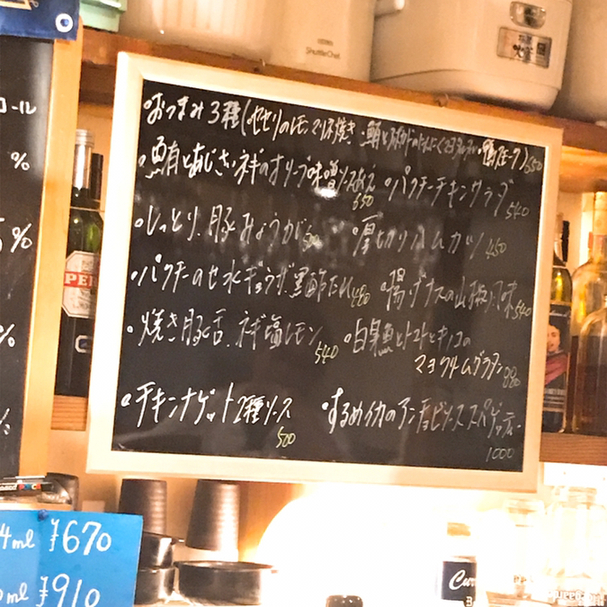 ShuttleChef
コール
%
%
%
%
・おつまみ3種(セセリのレモンマリネ焼き・鮪とアボカドの
550
・鮪とあじさいネギのオリーブ味噌ソースあえ
650
・パクチーチキンサラダ
540
・しっとり豚みょうが
500
・厚切りハムカツ
450
・パクチーのせ水ギョウザ黒酢だれ
480
・揚げナスの山椒風味
540
・焼き豚舌、ネギ塩レモン
540
・白身魚とトマトとキノコの
マヨクリームグラタン
880
・チキンナゲット2種ソース
500
・するめイカのアンチョビソーススパゲッティー
1000
4ml ¥670
ml ¥910